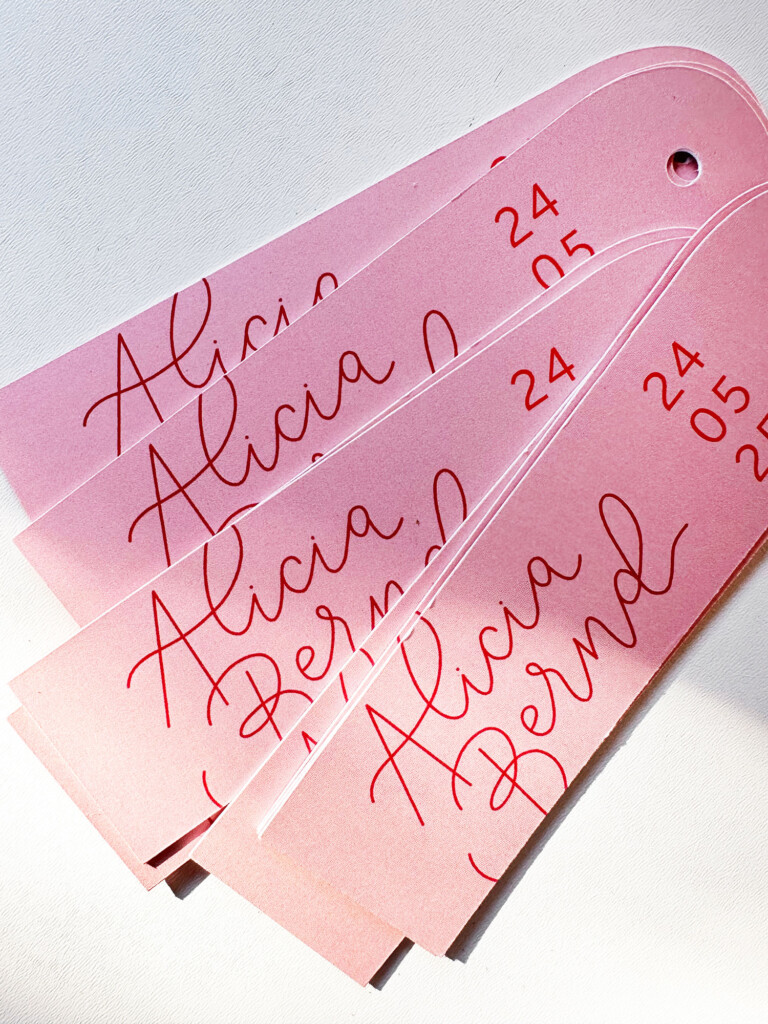 Alicia
24
05
Alicia
24
Alicia
Bernd
24
05
25
Alicia
Bernd